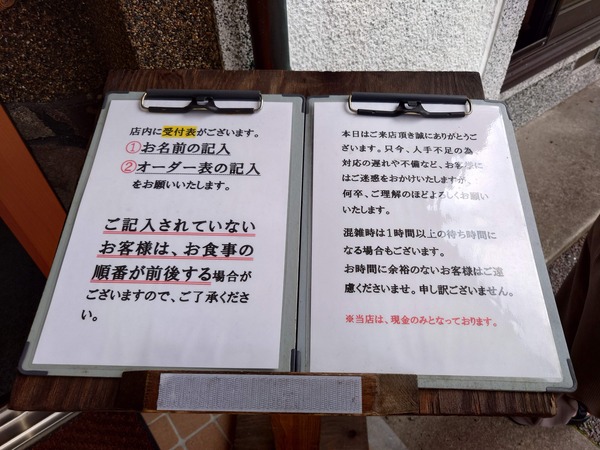 店内に受付表がございます。
①お名前の記入
②オーダー表の記入
をお願いいたします。
ご記入されていない
お客様は、お食事の
順番が前後する場合が
ございますので、ご了承くださ
い。
本日はご来店頂き誠にありがとうご
ざいます。只今、人手不足の為
対応の遅れや不備など、お客様に
はご迷惑をおかけいたしますが、
何卒、ご理解のほどよろしくお願い
いたします。
混雑時は1時間以上の待ち時間に
なる場合もございます。
お時間に余裕のないお客様はご遠
慮くださいませ。申し訳ございません。
※当店は、現金のみとなっております。